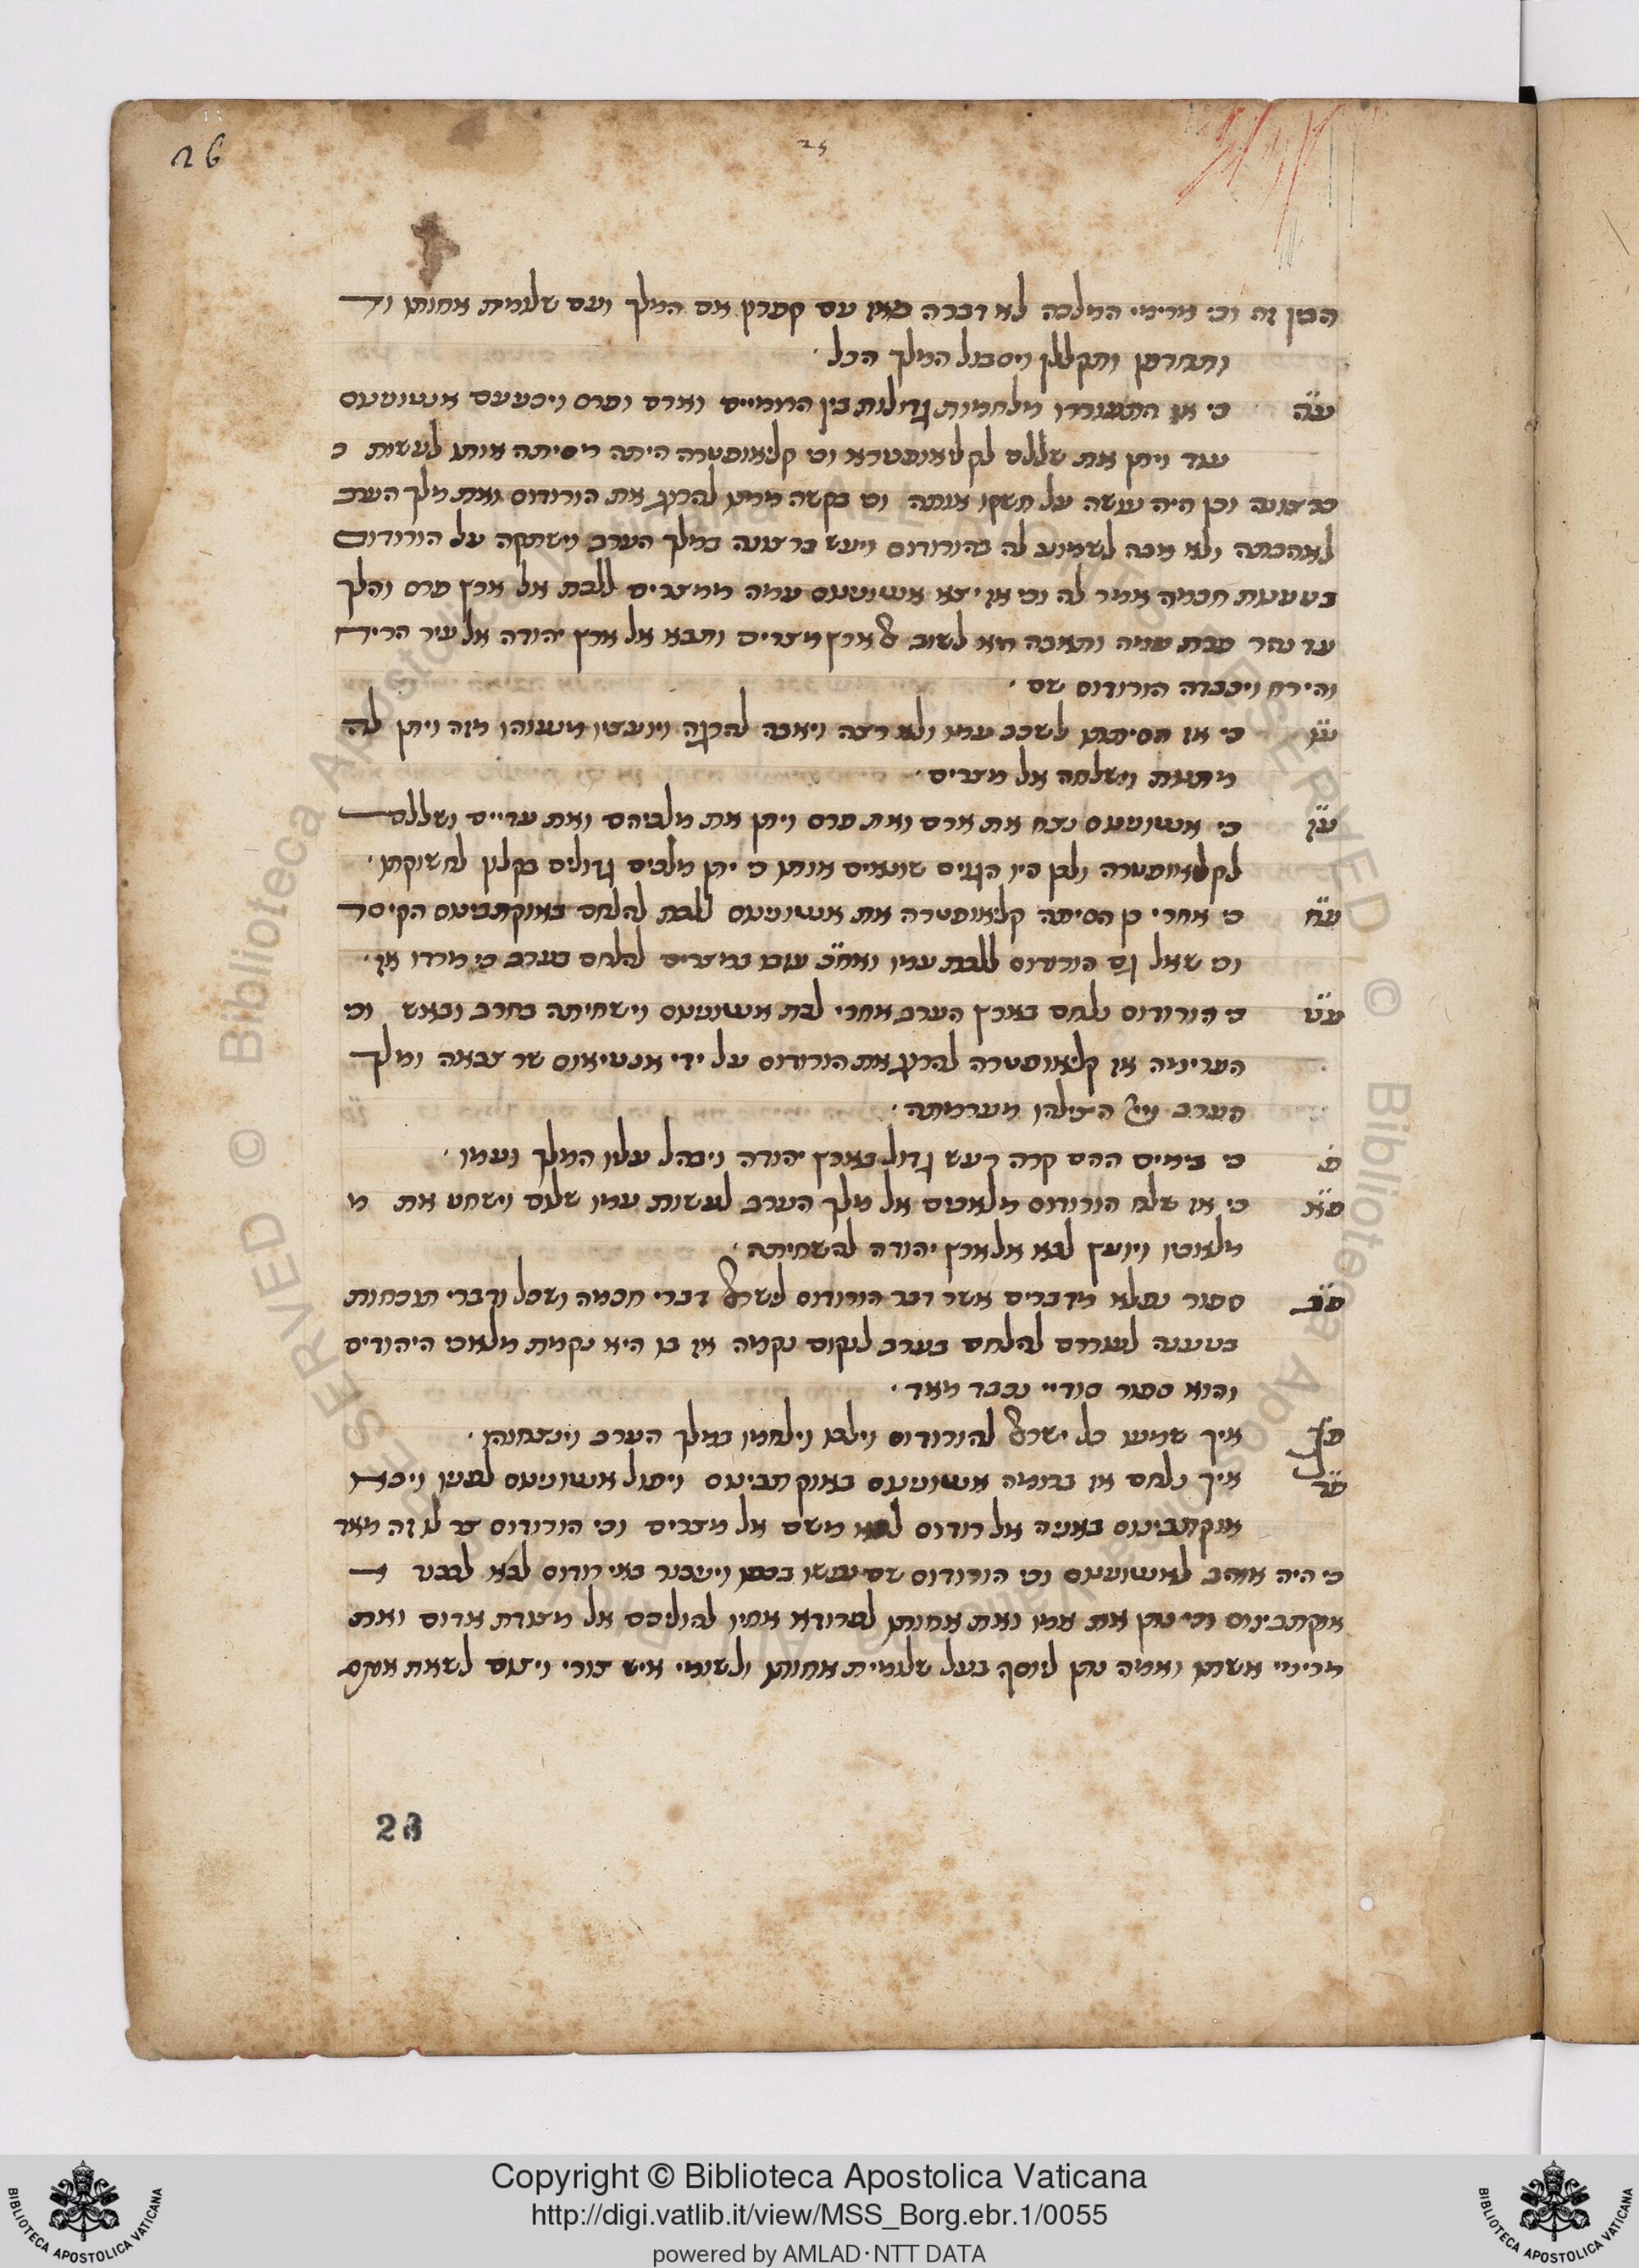 26
25
הבין זה וכי מרימי המלכה לא דברה מאז עם קפרון אם המלך ועם שלומית אחותו וד
ותחרפן ותקללן ויסבול המלך הכל
ע״ה כי אז התעוררו מלחמות גדולות בין הרומיים וארם ופרס ויכעעם אנטוניעס
עוד ויתן את שללם לקליאופטרא וכי קליאופטרה היתה מסיתה אותו לעשות כ
כרצונה וכן היה עושה על חשקו אותה וכי בקשה ממנו להרוג את הורודוס ואת מלך הערב
לאהבתה ולא אבה לשמוע לה בהורודוס ויעש כרצונה במלך הערב וישתקה על הורודוס
בטענת חכמה אמר לה וכי אז יצא אנטוניעס עמה ממצרים ללכת אל ארץ פרס והלך
עד נהר פרת עמה ותאבה היא לשוב אל ארץ מצרים ותבא אל ארץ יהודה אל עיר הריח
והירח ויכבדה הורודוס שם
ע״ו כי אז הסיתתו לשכב עמה ולא רצה ויאבה להרגה ויועציו מנעוהו מזה ויתן לה
מתנות וישלחה אל מצרים
ע״ז כי אנטוניעס נצח את ארם ואת פרס ויתן את מלכיהם ואת עריים ושללם
לקליאופטרה ולכן היו הגוים שונאים אותו כי יתן מלכים גדולים בקלון לחשוקתו
ע״ח כי אחרי כן הסיתה קליאופטרה את אנטוניעס ללכת להלחם באוקתביעס הקיסר
וכי שאל גם הורודוס ללכת עמו ואח״כ עזבו במצרים להלחם בערב כי מרדו אז
ע״ט כי הורודוס נלחם בארץ הערב אחרי לכת אנטוניעס וישחיתה בחרב ובאש וכי
הערימה אז קליאופטרה להרוג את הורודוס על ידי אנטיאוס שר צבאה ומלך
הערב וייי הצילהו מערמתה
פ כי בימים ההם קרה רעש גדול בארץ יהודה ויבהל עליו המלך ועמו
פ״א כי אז שלח הורודוס מלאכים אל מלך הערב לעשות עמו שלום וישחט את מ
מלאכיו ויועץ לבא אל ארץ יהודה להשחיתה
פ״ב ספור נפלא מדברים אשר דבר הורודוס לישראל דברי חכמה ושכל ודברי תוכחות
בטענה לעוררם להלחם בערב לנקום נקמה אז כי היא נקמת מלאכי היהודים
והוא ספור סודיי נכבד מאד
פ״ג איך שמעו כל ישראל להורודוס וילכו וילחמו במלך הערב וינצחוהו
פ״ד איך נלחם אז ברומה אנטוניעס באוקתביעס ויפול אנטוניעס לפניו ויבא
אוקתבינוס באניה אל רודוס לבא משם אל מצרים וכי הורודוס צר לו זה מאד
כי היה אוהב לאנטוניעס וכי הורודוס שם נפשו בכפו ויעבור באי רודוס לבא לכבוד
אוקתבינוס וכי נתן את אמו ואת אחותו לפרודא אחיו להוליכם אל מצודת אדום ואת
מרימי אשתו ואמה נתן ליוסף בעל שלומית אחותו ולשומי איש צורי ויצום לשאת אותם
26
Copyright © Biblioteca Apostolica Vaticana
http://digi.vatlib.it/view/MSS_Borg.ebr.1/0055
powered by AMLAD·NTT DATA
BIBLIOTECA APOSTOLICA VATICANA
BIBLIOTECA APOSTOLICA VATICANA